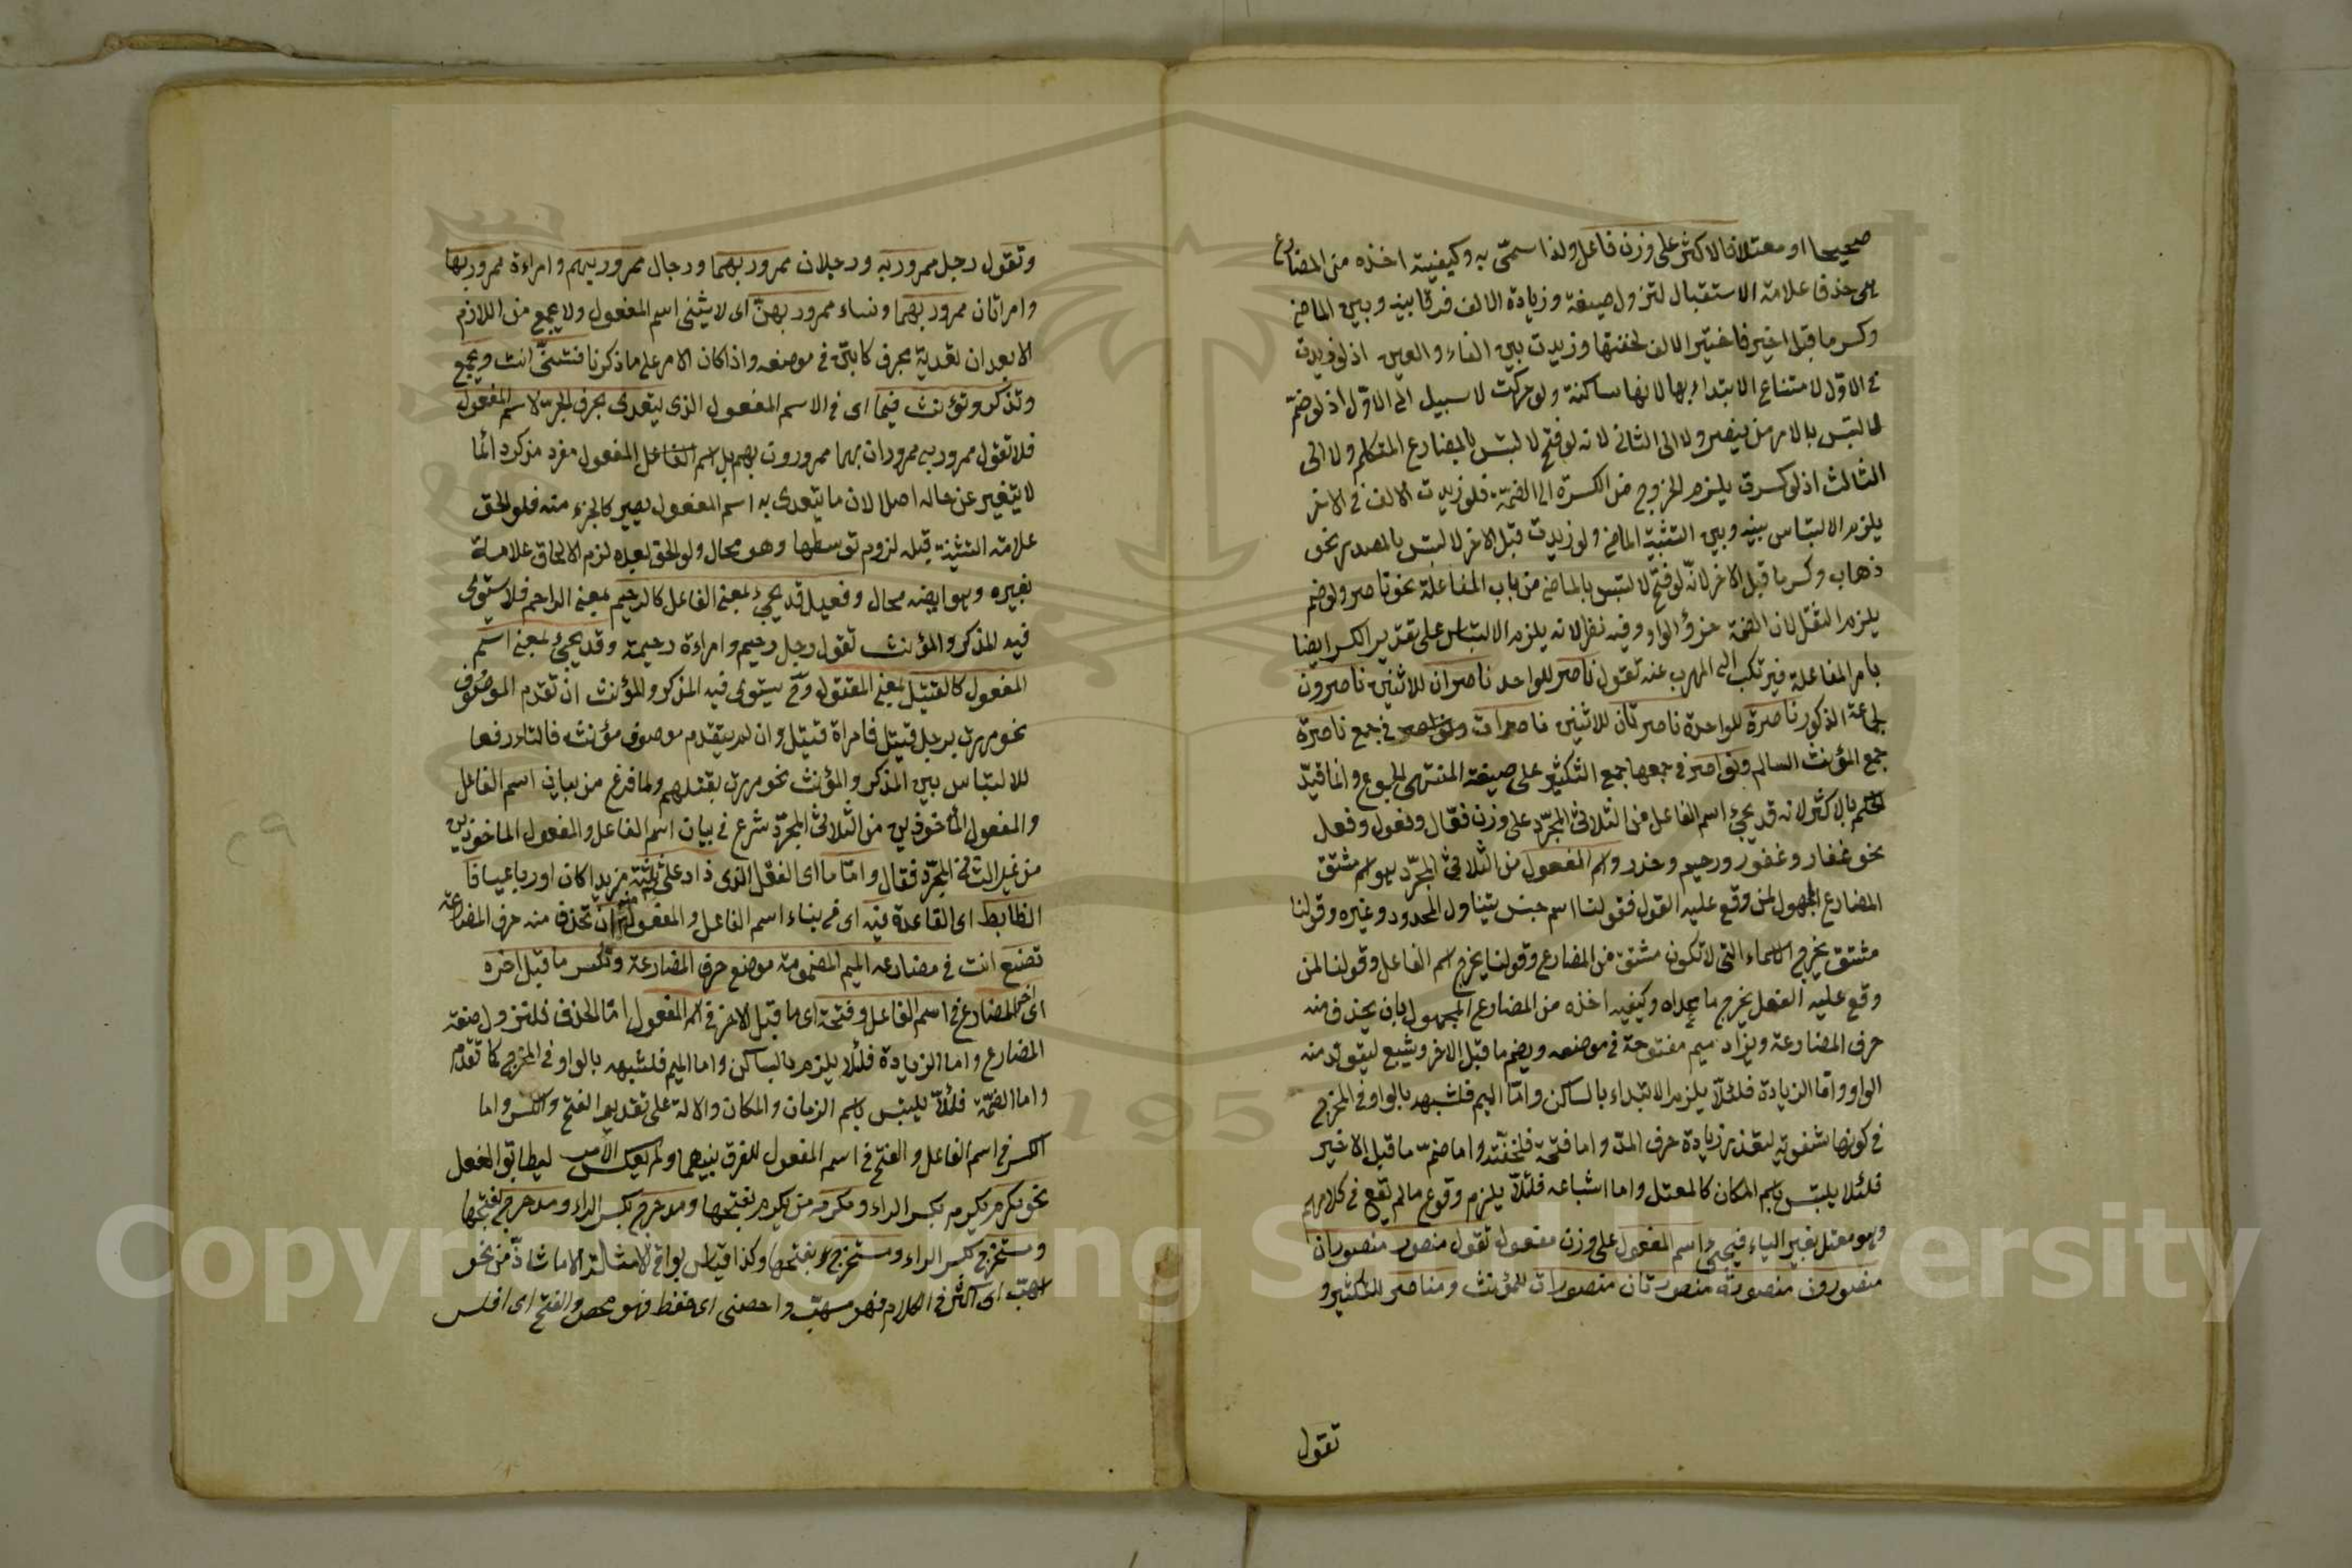 صحيحا او معتلا فالاكثر على وزن فاعل ولذا سمى به وكيفيته اخذه من المضارع
هى حذف علامة الاستقبال لتزول صيغة وزيادة الالف فرقا بينه وبين الماضى
وكسر ما قبل اخيره فاختير الالف لخفتها وزيدت بين الفاء والعين اذ لو زيدت
فى الاوّل لامتناع الابتداء بها لانها ساكنة ولو حركت لا سبيل الى الاوّل اذ لو ضمّ
لالتبس بالامر من ينصر ولا الى الثانى لانه لو فتح لالتبس بالمضارع المتكلم ولا الى
الثالث اذ لو كسرت يلزم الخروج من الكسرة الى الضمّة فلو زيدت الالف فى الاخر
يلزم الالتباس بينه وبين التثنية الماضى ولو زيدت قبل الاخر لالتبس بالمصدر نحو
ذهاب وكسر ما قبل الاخر لانّه لو فتح لالتبس بالماضى من باب المفاعلة نحو ناصر ولو ضم
يلزم الثقل لان الضمّة جزؤ الواو وفيه نظر لانه يلزم الالتباس على تقدير الكسر ايضا
بامر المفاعلة فيرتكب الى المهرب عنه تقول ناصر للواحد ناصران للاثنين ناصرون
لجماعة الذكور ناصرة للواحدة ناصرتان للاثنين ناصرات ونواصر فى جمع ناصرة
جمع المؤنث السالم ونواصر فى جمعها جمع التكثير على صيغة المنتهى الجموع وانما قيّد
الحكم بالاكثر لانه قد يجئ اسم الفاعل من الثلاثى المجرّد على وزن فعّال وفعول وفعل
نحو غفار وغفور ورحيم وحذر واسم المفعول من الثلاثى المجرّد هو اسم مشتق
المضارع المجهول لمن وقع عليه القول فقولنا اسم جنس يتناول المحدود وغيره وقولنا
مشتق يخرج الاسماء التى لا تكون مشتق من المضارع وقولنا يخرج اسم الفاعل وقولنا لمن
وقع عليه الفعل يخرج ما عداه وكيفيه اخذه من المضارع المجهول بان يحذف منه
حرف المضارعة ويزاد ميم مفتوحة فى موضعه ويضم ما قبل الاخر ويشبع ليتولد منه
الواو وامّا الزيادة فلئلّا يلزم الابتداء بالساكن وامّا الميم فلشبهه بالواو فى المخرج
فى كونها شفوية لتعذر زيادة حرف المدّ واما فتحة فلخفّته واما ضمّ ما قبل الاخير
فلئلا يلتبس باسم المكان كالمعتل واما اشباعه فلئلّا يلزم وقوع مالم يقع فى كلامهم
وهو مفعل بغير الياء فيجئ اسم المفعول على وزن مفعول تقول منصور منصوران
منصورون منصورة منصورتان منصورات للمؤنث ومناصر للتكثير و
تقول
وتقول رجل ممرور به ورجلان ممرور بهما ورجال ممرور بهم وامراءة ممرور بها
وامراتان ممرور بهما ونساء ممرور بهنّ اى لا يثنى اسم المفعول ولا يجمع من اللازم
الا بعد ان تعدية بحرف كائن فى موضعه واذا كان الامر على ما ذكرنا فتثنّى انت ويجمع
وتذكر وتؤنث فيما اى فى الاسم المفعول الذى يتعدى بحرف الجرّ لا اسم المفعول
فلا تقول ممرور به ممروران بهما ممرورون بهم بل اسم الفاعل المفعول مفرد مذكر دائما
لا يتغير عن حاله اصلا لان ما يتعدى به اسم المفعول يصير كالجزء منه فلو لحق
علامة التثنية قبله لزوم توسطها وهو محال ولو لحق بعده لزم الالحاق علامة
بغيره وهو ايضه محال وفعيل قد يجئ بمعنى الفاعل كالرحيم بمعنى الراحم فلا يستوى
فيه المذكر والمؤنث تقول رجل رحيم وامراءة رحيمة وقد يجئ بمعنى اسم
المفعول كالقتيل بمعنى المقتول وح يستوى فيه المذكر والمؤنث ان تقدم الموصوف
نحو مررت برجل قتيل فامراة قتيل وان لم يتقدم موصوف مؤنث فالتاء رفعا
للالتباس بين المذكر والمؤنث نحو مررت بقتلهم ولما فرغ من بيان اسم الفاعل
والمفعول المأخوذين من الثلاثى المجرّد شرع فى بيان اسم الفاعل والمفعول الماخوذين
من غير الثلاثى المجرّد فقال وامّا ما اى الفعل الذى زاد على ثلثة مزيدا كان او رباعيا فا
الظابط اى القاعدة فيه اى فى بناء اسم الفاعل والمفعول منه ان تحذف منه حرف المضارعة
تضع انت فى مضارعه الميم المضمومة موضع حرف المضارعة وتكسر ما قبل اخره
اى اخر المضارع فى اسم الفاعل وفتحة اى ما قبل الاخر فى اسم المفعول امّا الحذف فلتزول صيغة
المضارع واما الزيادة فلئلا يلزم بالساكن واما الميم فلشبهه بالواو فى المخرج كما تقدم
واما الضمّة فلئلّا يلتبس باسم الزمان والمكان والالة على تقدير الفتح والكسر واما
الكسر فى اسم الفاعل والفتح فى اسم المفعول للفرق بينهما ولم يعكس الامر ليطابق الفعل
نحو يكرم مكرم بكسر الراء ومكرم من يكرم بفتحها ومدحرج بكسر الراء ومدحرج بفتحها
ومستخرج بكسر الراء ومستخرج بفتحها وكذا قياس بواقى الامثالة الا ما شاذّ من نحو
اسهب اى اكثر فى الكلام فهو مسهب واحصنى اى حفظ فهو محصن والفتح اى افلس
Copyright © King Saud University
195